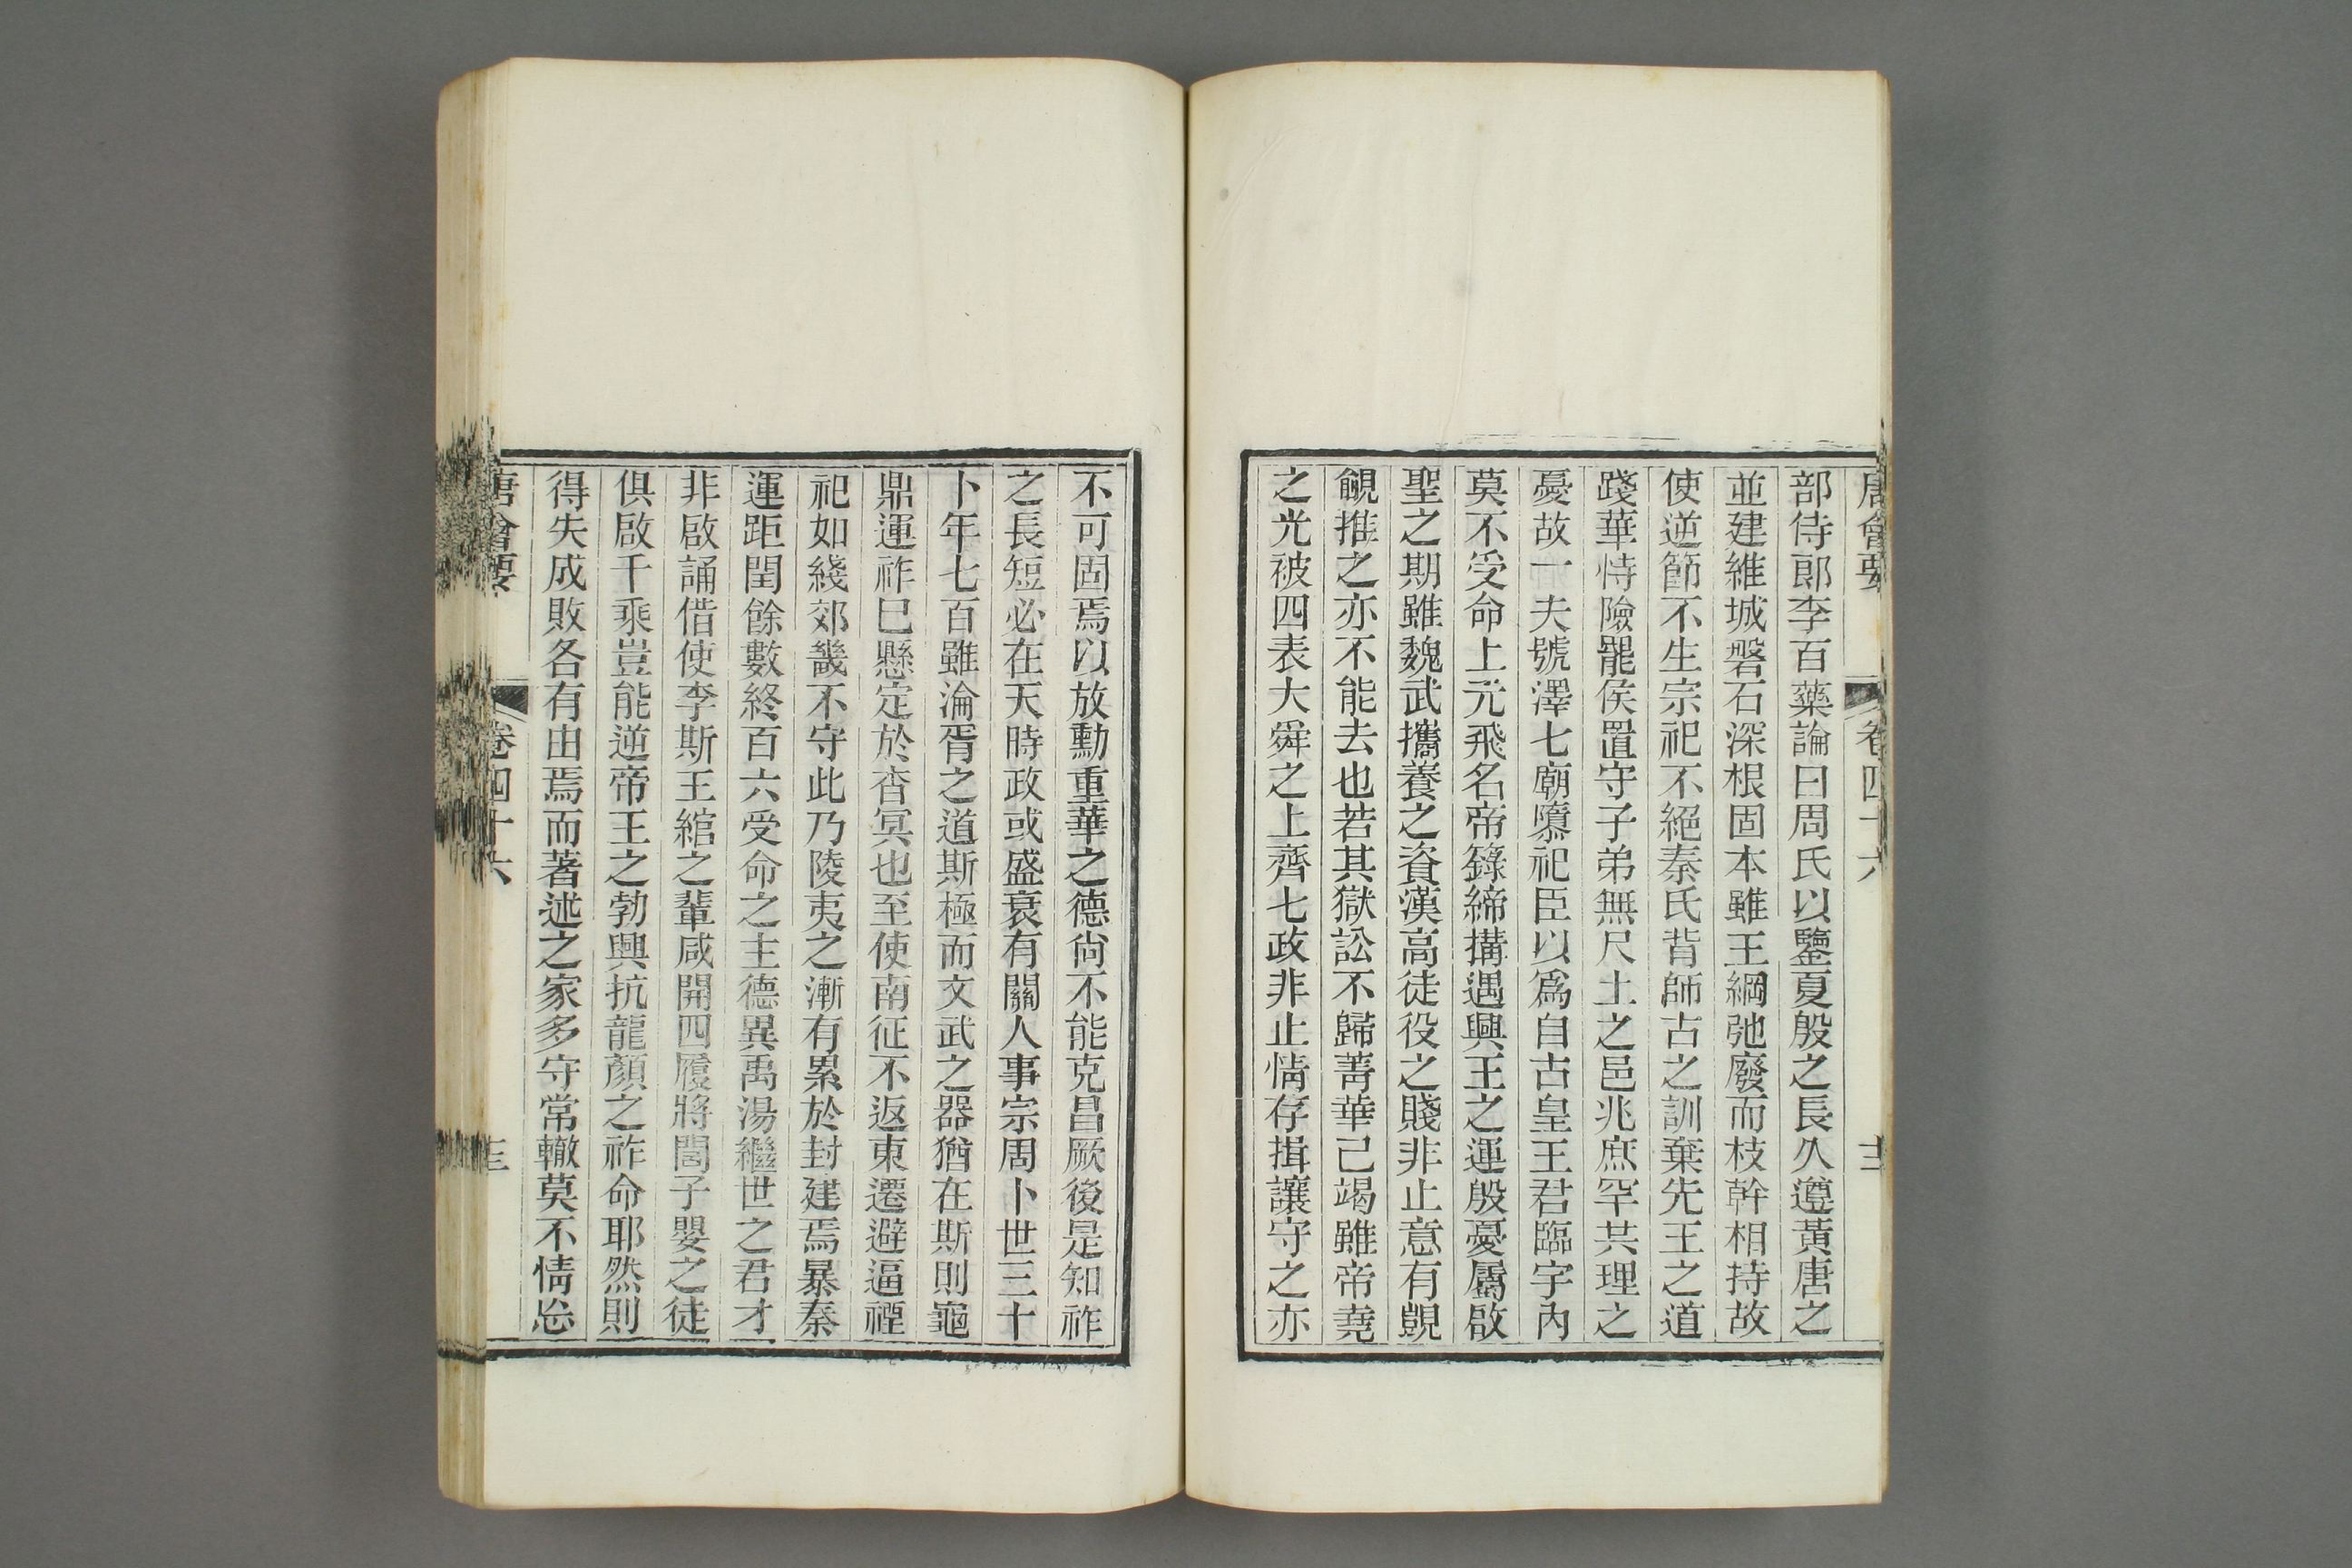 唐會要 卷四十六 十二
部侍郎李百藥論曰周氏以鑒夏殷之長久遵黃唐之
並建維城磐石深根固本雖王綱弛廢而枝幹相持故
使逆節不生宗祀不絕秦氏背師古之訓棄先王之道
踐華恃險罷侯置守子弟無尺土之邑兆庶罕共理之
憂故一夫號澤七廟隳祀臣以爲自古皇王君臨宇內
莫不受命上元飛名帝籙締搆遇興王之運殷憂屬啟
聖之期雖魏武攜養之資漢高徒役之賤非止意有覬
覦推之亦不能去也若其獄訟不歸菁華已竭雖帝堯
之光被四表大舜之上齊七政非止情存揖讓守之亦
不可固焉以放勳重華之德尙不能克昌厥後是知祚
之長短必在天時政或盛衰有關人事宗周卜世三十
卜年七百雖淪胥之道斯極而文武之器猶在斯則龜
鼎運祚巳懸定於杳冥也至使南征不返東遷避逼禋
祀如綫郊畿不守此乃陵夷之漸有累於封建焉暴秦
運距閏餘數終百六受命之主德異禹湯繼世之君才
非啟誦借使李斯王綰之輩咸開四履將閭子嬰之徒
俱啟千乘豈能逆帝王之勃興抗龍顏之祚命耶然則
得失成敗各有由焉而著述之家多守常轍莫不情忘
唐會要 卷四十六